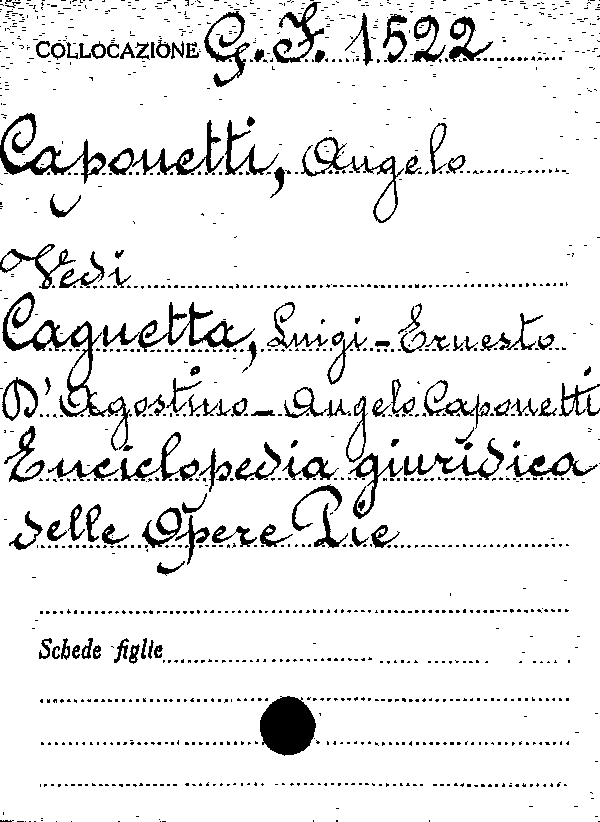 COLLOCAZIONE G. F. 1522
Caponetti, Angelo
Vedi
Cagnetta, Luigi - Ernesto
D'Agostino - Angelo Caponetti
Enciclopedia giuridica
delle Opere Pie
Schede figlie